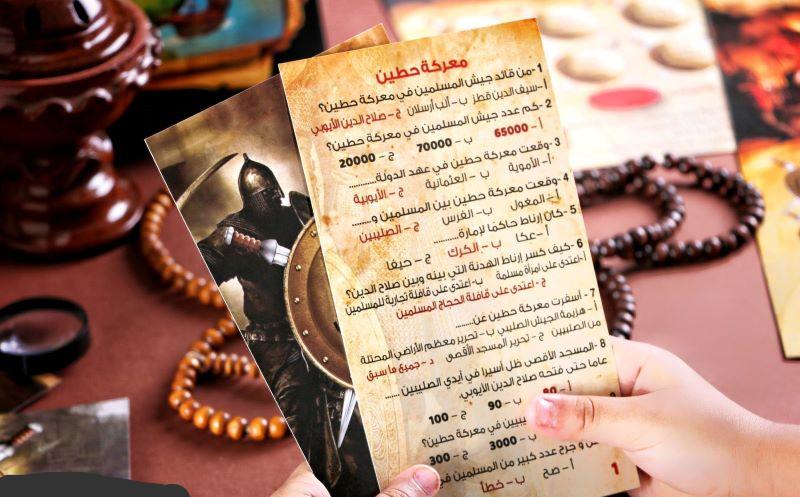 معركة حطين
1 -من قائد جيش المسلمين في معركة حطين؟
أ-سيف الدين قطز ب- ألب أرسلان ج- صلاح الدين الأيوبي
2 -كم عدد جيش المسلمين في معركة حطين؟
أ- 65000 ب- 70000 ج- 20000
3 -وقعت معركة حطين في عهد الدولة..........
أ- الأموية ب- العثمانية ج- الأيوبية
4 -وقعت معركة حطين بين المسلمين و........
أ- المغول ب- الفرس ج- الصليبين
5 -كان إرناط حاكمًا لإمارة..........
أ-عكا ب- الكرك ج- حيفا
6 -كيف كسر إرناط الهدنة التي بينه وبين صلاح الدين؟
أ-اعتدى على امرأة مسلمة ب-اعتدى على قافلة تجارية للمسلمين
ج- اعتدى على قافلة الحجاج المسلمين
7 - أسفرت معركة حطين عن........
أ - هزيمة الجيش الصليبي ب-تحرير معظم الأراضي المحتلة
من الصليبين ج- تحرير المسجد الأقصى د- جميع ما سبق
8 -المسجد الأقصى ظل أسيرا في أيدي الصليبين ........
عاما حتى فتحه صلاح الدين الأيوبي.
ب- 90 ج- 100
في معركة حطين؟
ب- 3000 ج- 300
و جرح عدد كبير من المسلمين في
أ- صح ب- خطأ
1